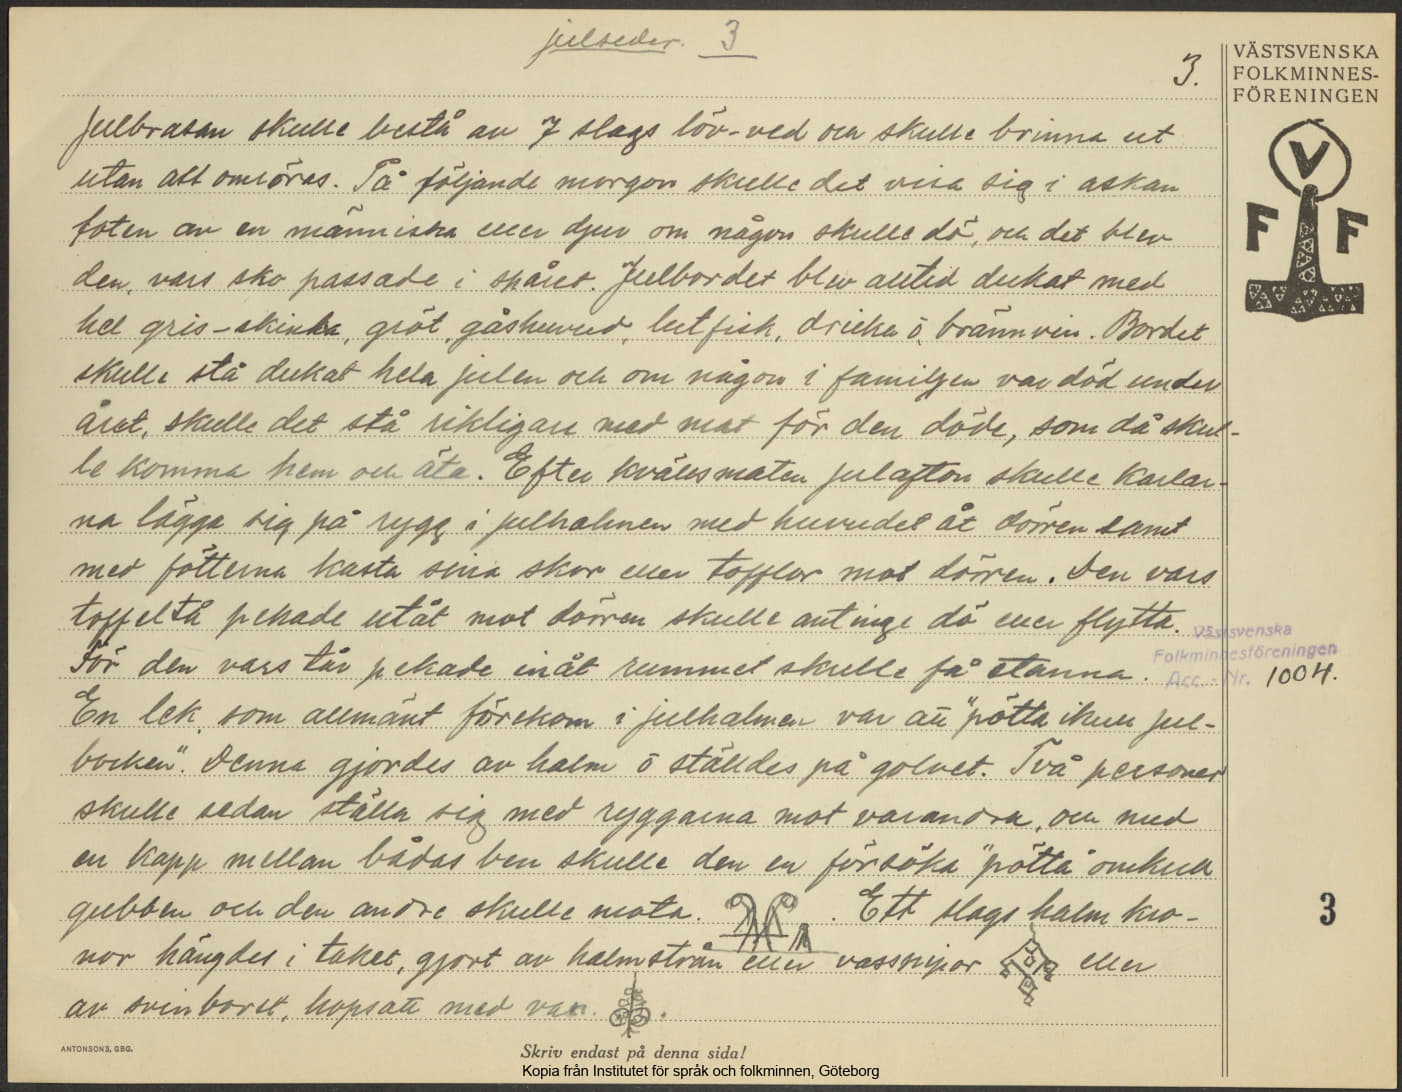 julseder. 3
3.
VÄSTSVENSKA
FOLKMINNES-
FÖRENINGEN
V
F F
Julbrasan skulle bestå av 7 slags löv-ved och skulle brinna ut
utan att omröras. På följande morgon skulle det visa sig i askan
foten av en människa eller djur om någon skulle dö, och det blev
den, vars sko passade i spåret. Julbordet blev alltid dukat med
hel gris-skinka, gröt, gåshuvud, lutfisk, dricka o brännvin. Bordet
skulle stå dukat hela julen och om någon i familjen var död under
året, skulle det stå rikligare med mat för den döde, som då skul-
le komma hem och äta. Efter kvällsmaten julafton skulle karlar-
na lägga sig på rygg i julhalmen med huvudet åt dörren samt
med fötterna kasta sina skor eller tofflor mot dörren. Den vars
toffeltå pekade utåt mot dörren skulle antinge dö eller flytta.
För den vars tår pekade inåt rummet skulle få stanna.
Västsvenska
Folkminnesföreningen
Acc. - Nr. 1004.
En lek, som allmänt förekom i julhalmen var att "pötta ikull jul-
bocken". Denna gjordes av halm o ställdes på golvet. Två personer
skulle sedan ställa sig med ryggarna mot varandra, och med
en käpp mellan bådas ben skulle den en försöka "pötta" omkull
gubben och den andre skulle mota. Ett slags halm kro-
nor hängdes i taket, gjort av halmstrån eller vassvipor eller
av svinborst, hopsatt med vax.
3
ANTONSONS, GBG.
Skriv endast på denna sida!
Kopia från Institutet för språk och folkminnen, Göteborg